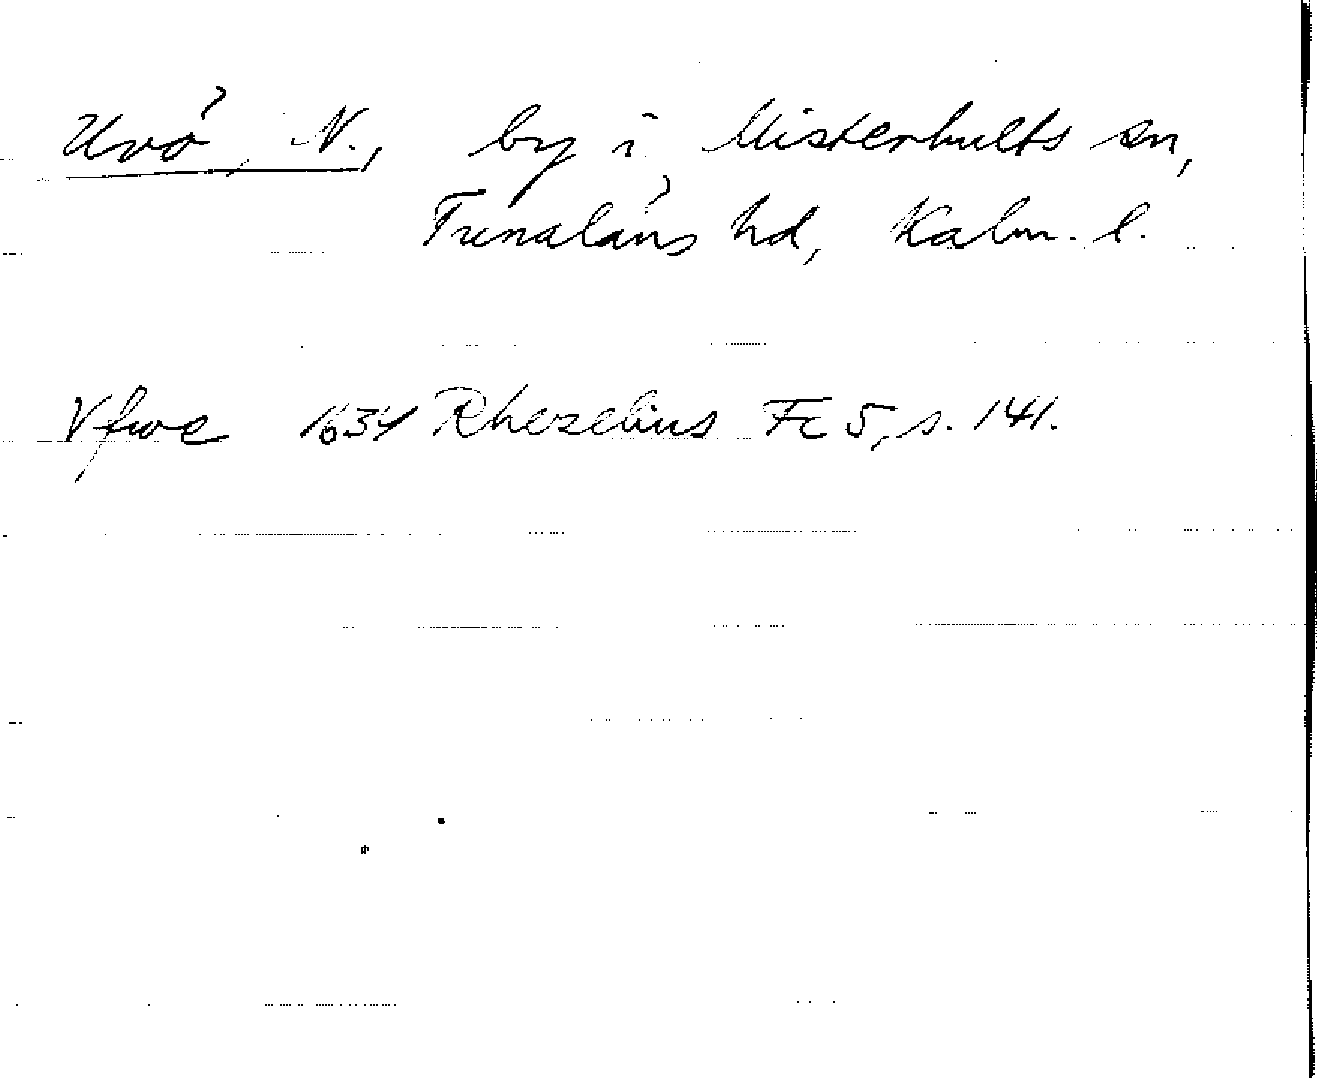 Uvö, N., by i Misterhults sn,
Tunaläns hd, Kalm. l.
Vfwe 1634 Rhezelius Fc 5, s. 141.